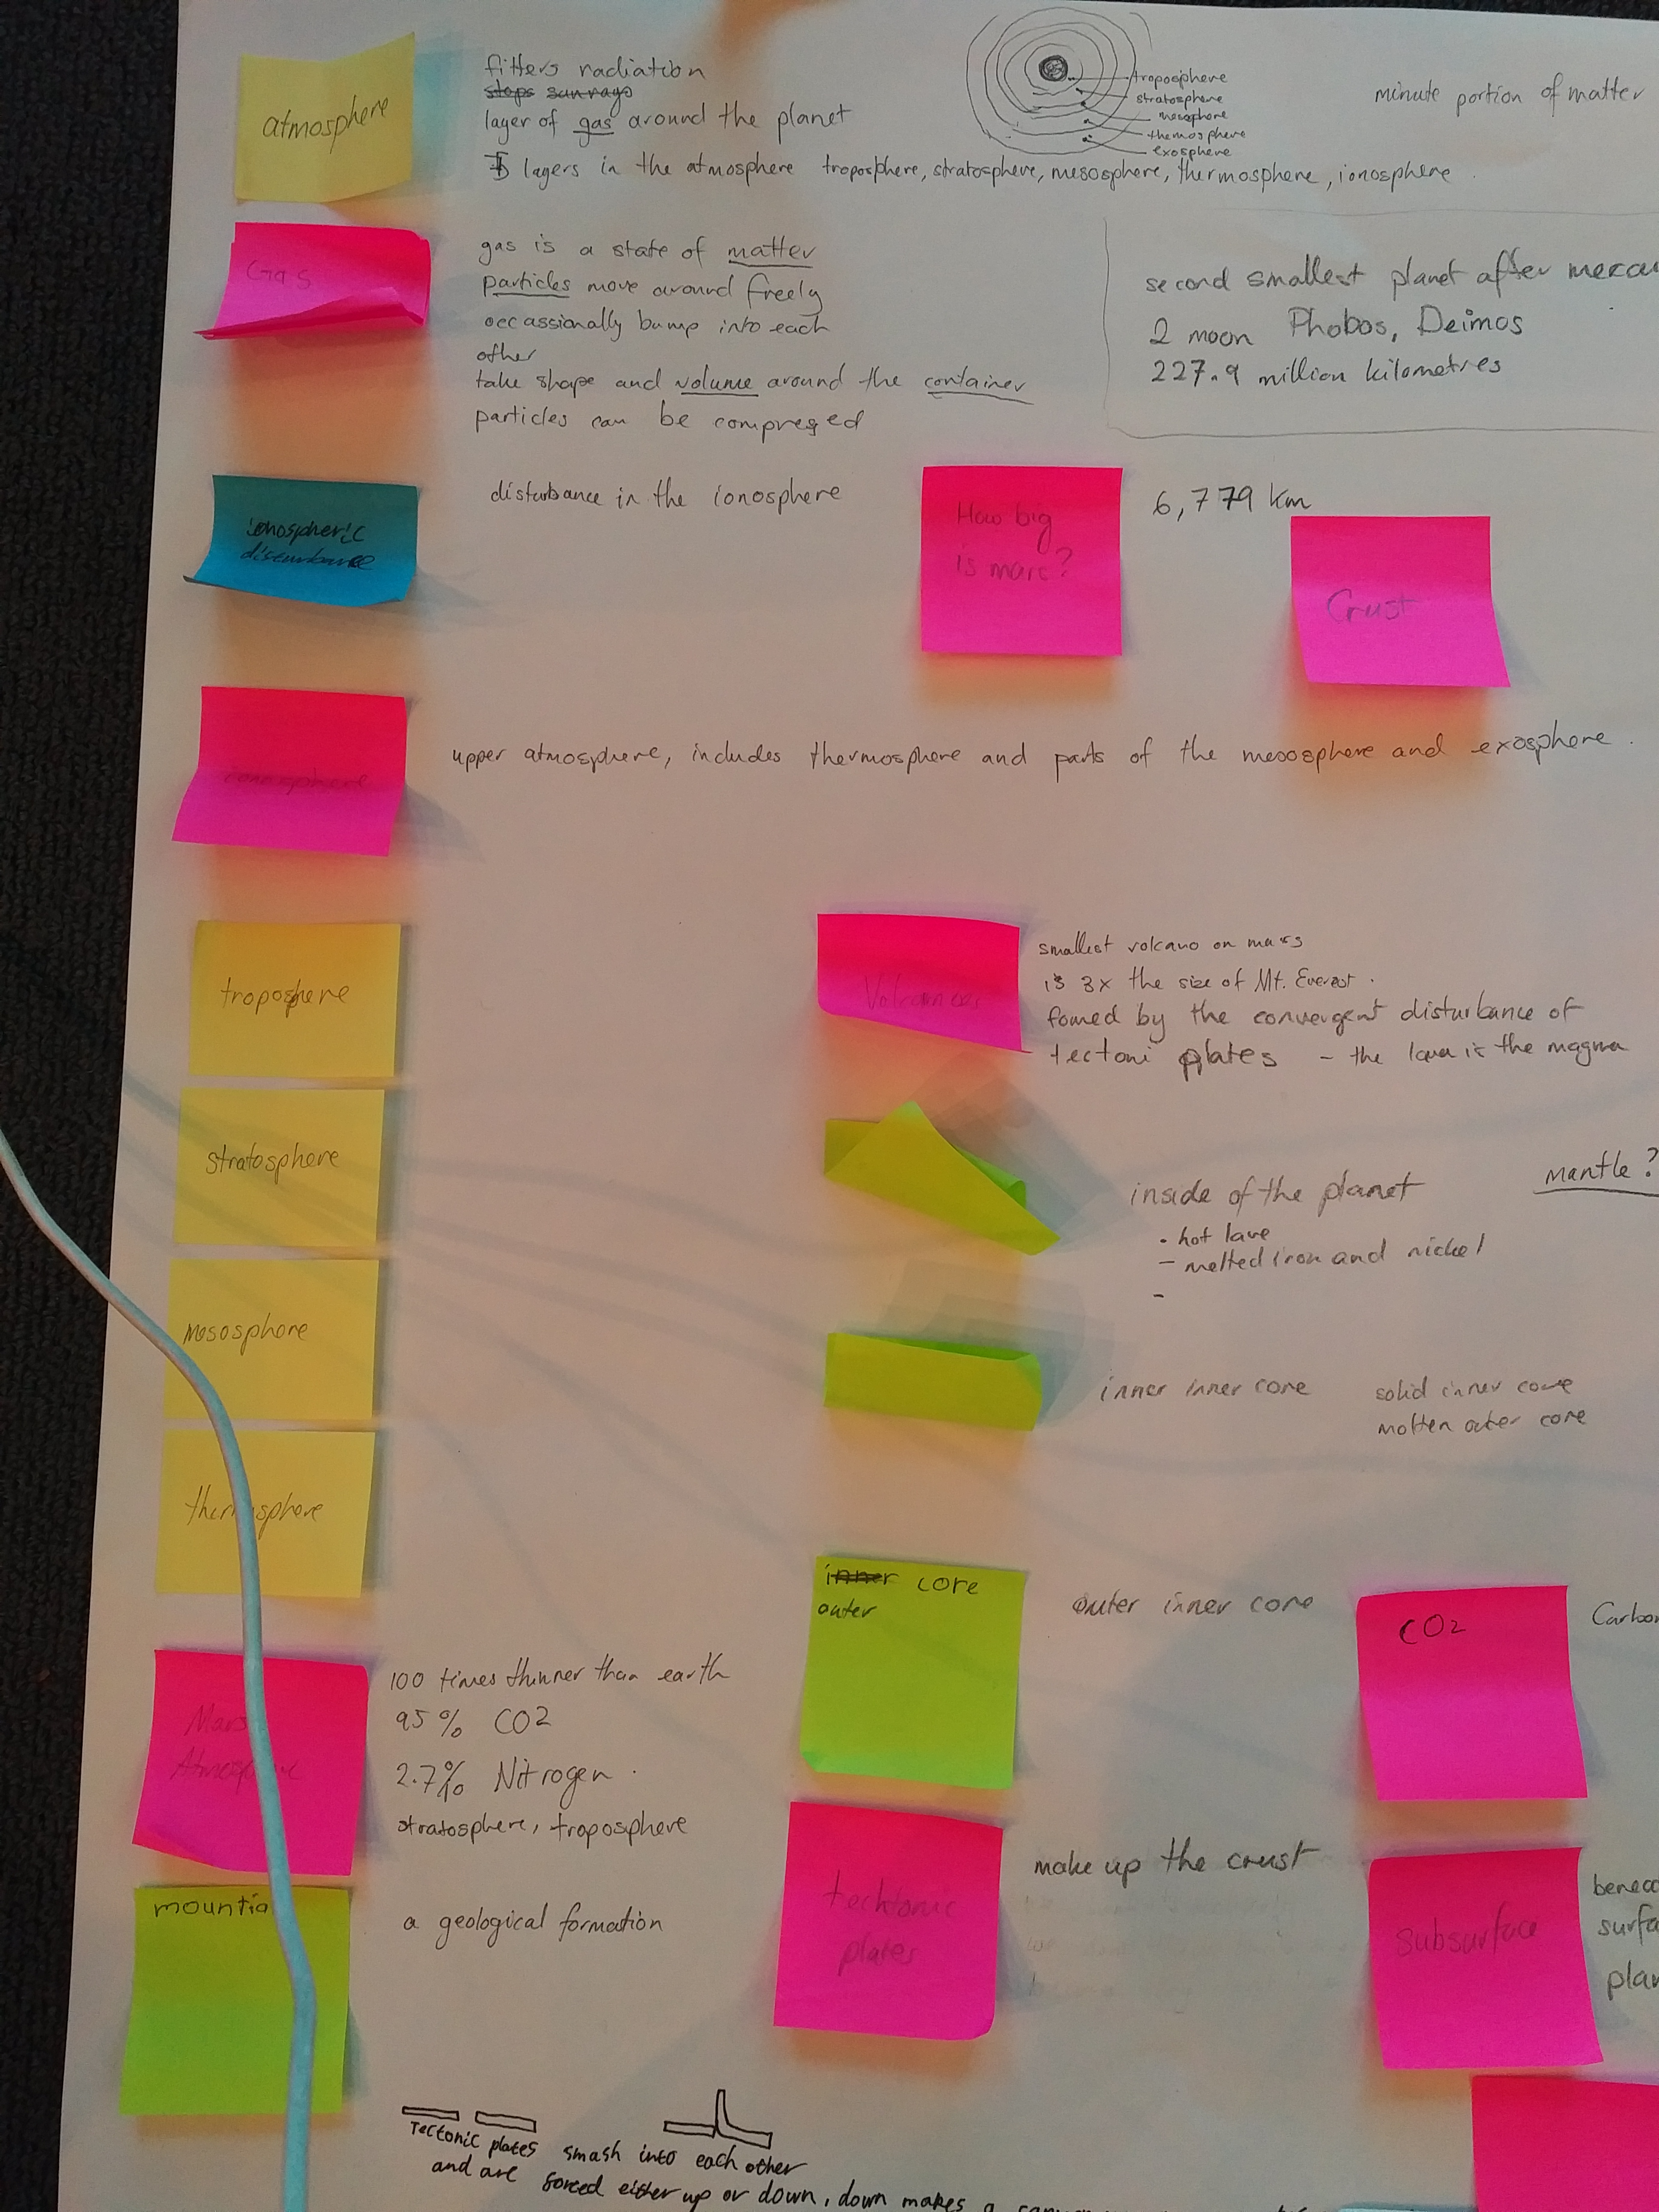 atmosphere
filters radiation
stops sunrays
layer of gas around the planet
5 layers in the atmosphere troposphere, stratosphere, mesosphere, thermosphere, ionosphere.
troposphere
stratosphere
mesosphere
themosphere
exosphere
minute portion of matter
Gas
gas is a state of matter
particles move around freely
occassionally bump into each
other
take shape and volume around the container
particles can be compressed
second smallest planet after mercu
2 moon Phobos, Deimos
227.9 million kilometres
ionospheric
disturbance
disturbance in the ionosphere
How big
is mars?
6,779 km
Crust
ionosphere
upper atmosphere, includes thermosphere and parts of the mesosphere and exosphere.
troposphere
stratosphere
mesosphere
thermosphere
Volcanoes
smallest volcano on mars
is 3x the size of Mt. Everest.
fomed by the convergent disturbance of
tectoni plates - the lava is the magma
inside of the planet
mantle?
• hot lave
- melted iron and nickel
-
inner inner core
solid inner core
molten outer core
inner core
outer
outer inner core
CO2
Carbon
Mars
Atmosphere
100 times thinner than earth
95% CO2
2.7% Nitrogen.
stratosphere, troposphere
mountia
a geological formation
tecktonic
plates
make up the crust
subsurface
benea
surfa
plan
Tectonic plates smash into each other
and are forced either up or down, down makes a